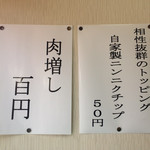 相性抜群のトッピング
自家製ニンニクチップ
50円
肉増し
百円